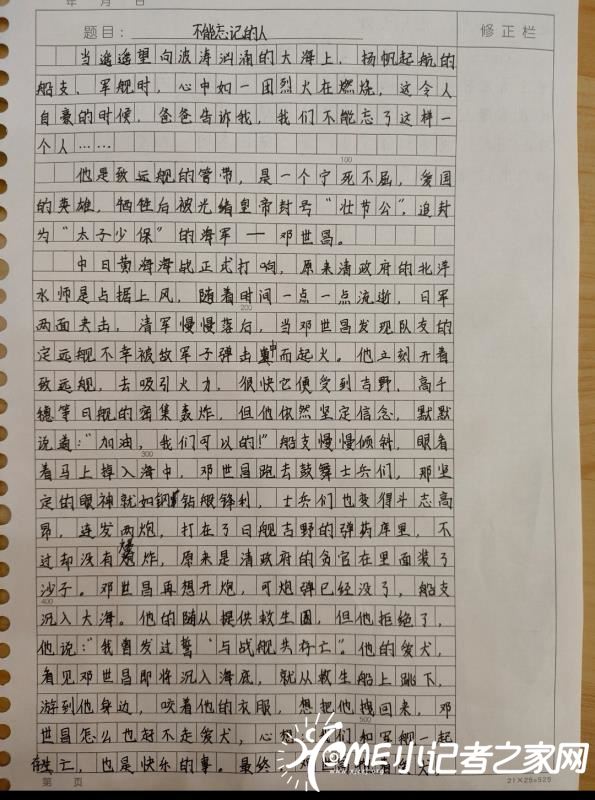 年 月 日
题目：不能忘记的人
修正栏
当遥遥望向波涛汹涌的大海上，扬帆起航的
船支、军舰时，心中如一团烈火在燃烧，这令人
自豪的时候，爸爸告诉我，我们不能忘了这样一
个人……
100
他是致远舰的管带，是一个宁死不屈，爱国
的英雄，牺牲后被光绪皇帝封号“壮节公”，追封
为“太子少保”的海军——邓世昌。
中日黄海海战正式打响，原来清政府的北洋
水师是占据上风，随着时间一点一点流逝，日军
200
两面夹击，清军慢慢落后，当邓世昌发现队支的
定远舰不幸被敌军子弹击中而起火。他立刻开着
致远舰，去吸引火力，很快它便受到吉野，高千
穗等日舰的密集轰炸，但他依然坚定信念，默默
说道：“加油，我们可以的！”船支慢慢倾斜，眼看
300
着马上掉入海中，邓世昌跑去鼓舞士兵们，那坚
定的眼神就如钢钻般锋利，士兵们也变得斗志高
昂，连发两炮，打在了日舰吉野的弹药库里，不
过却没有爆炸，原来是清政府的贪官在里面装了
沙子。邓世昌再想开炮，可炮弹已经没了，船支
400
沉入大海。他的随从提供救生圈，但他拒绝了，
他说：“我曾发过誓与战舰共存亡”。他的爱犬，
看见邓世昌即将沉入海底，就从救生船上跳下，
游到他身边，咬着他的衣服，想把他拽回来，邓
500
世昌怎么也赶不走爱犬，心想：我们和军舰一起
存亡，也是快乐的事。最终，邓世昌抱着爱犬，
第 页
21×25=525
HOME小记者之家网